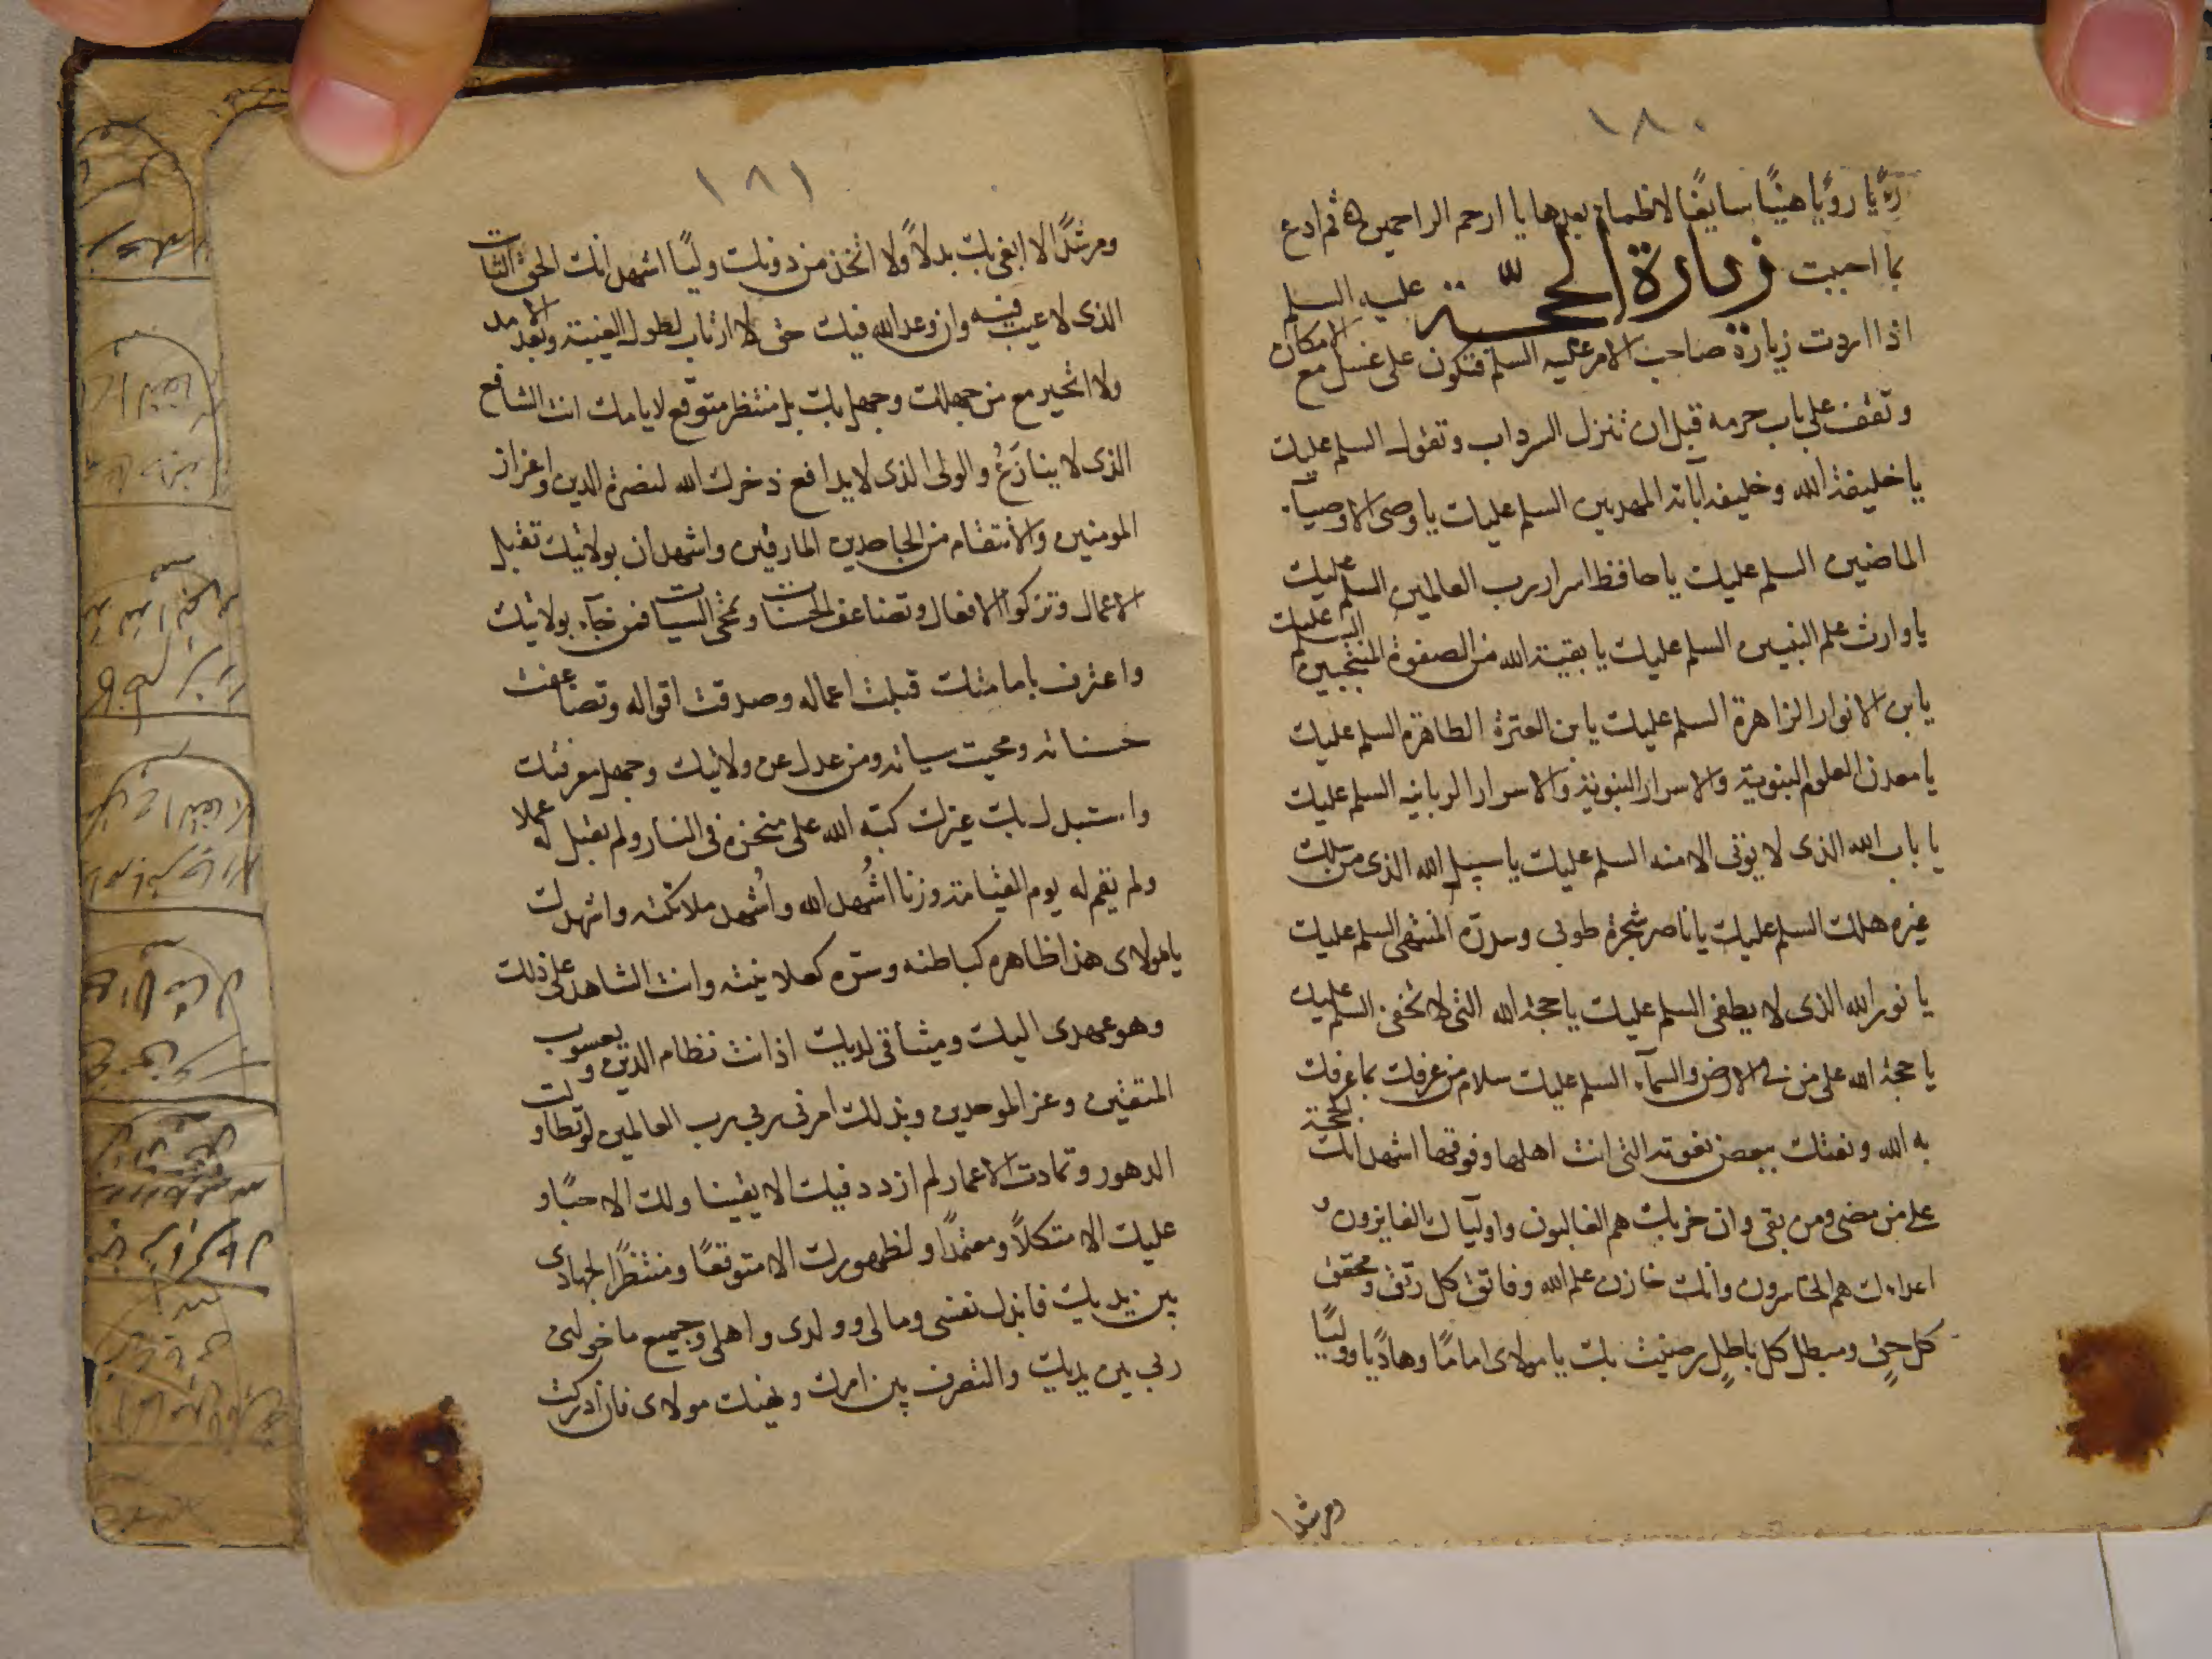 ١٨٠
ريًّا رويًا هنيًّا سايغًا لا ظماء بعدها يا ارحم الراحمين ثم ادع
بما احببت زيارة الحجّة عليه السلم
اذا اردت زيارة صاحب الامر عليه السلم فتكون على غسل مع الامكان
وتقف على باب حرمه قبل ان تنزل السرداب وتقول السلم عليك
يا خليفة الله وخليفة آبائه المهديين السلم عليك يا وصى الاوصيآء
الماضين السلم عليك يا حافظ اسرار رب العالمين السلم عليك
يا وارث علم النبيين السلم عليك يا بقية الله من الصفوة المنتجبين السلم عليك
يا بن الانوار الزاهرة السلم عليك يا بن العترة الطاهرة السلم عليك
يا معدن العلوم النبوية والاسرار النبوية والاسرار الربانيه السلم عليك
يا باب الله الذى لا يوتى الا منه السلم عليك يا سبيل الله الذى من سلك
غيره هلك السلم عليك يا ناصر شجرة طوبى وسدرة المنتهى السلم عليك
يا نور الله الذى لا يطفى السلم عليك يا حجة الله التى لا تخفى السلم عليك
يا حجة الله على من فى الارض والسمآء السلم عليك سلام من عرفك بما عرفك
به الله ونعتك ببعض نعوته التى انت اهلها وفوقها اشهد انك الحجة
على من مضى ومن بقى وان حزبك هم الغالبون واوليآك الفايزون و
اعداءك هم الخاسرون وانك خازن علم الله وفاتق كل رتق ومحقق
كل حقٍ ومبطل كل باطلٍ رضيت بك يا مولاى امامًا وهاديًا ووليًا
ومرشدا
١٨١
ومرشدًا لا ابغى بك بدلاً ولا اتخذ من دونك وليًا اشهد انك الحق الثابت
الذى لا عيب فيه وان وعد الله فيك حق لا ارتاب لطول الغيبة وبعد الامد
ولا اتحير مع من جهلك وجهل بك بل منتظر متوقع لايامك انت الشافع
الذى لا ينازَعُ والولى الذى لا يدافع ذخرك الله لنصرة الدين واعزاز
المومنين والانتقام من الجاحدين المارقين واشهد ان بولايتك تقبل
الاعمال وتزكوا الافعال وتضاعف الحسنات وتمحى السيات فمن جآء بولايتك
واعترف بامامتك قبلت اعماله وصدقت اقواله وتضاعفت
حسناته ومحيت سياته ومن عدل عن ولايتك وجهل معرفتك
واستبدل بك غيرك كبّه الله على منخره فى النار ولم يقبل له عملا
ولم يقم له يوم القيامة وزنا اشُهد الله واُشهد ملائكته واشهدك
يا مولاى هذا ظاهره كباطنه وسره كعلانيته وانت الشاهد على ذلك
وهو عهدى اليك وميثاقى لديك اذ انت نظام الدين ويعسوب
المتقين وعز الموحدين وبذلك امرنى ربى رب العالمين لو تطاولت
الدهور وتمادت الاعمار لم ازدد فيك الا يقينا ولك الا حبًا و
عليك الا متكلاً ومعتمدًا ولظهورك الا متوقعًا ومنتظرًا لجهادى
بين يديك فابذل نفسى ومالى وولدى واهلى وجميع ما خولنى
ربى بين يديك والتصرف بين امرك ونهيك مولاى فان ادركت